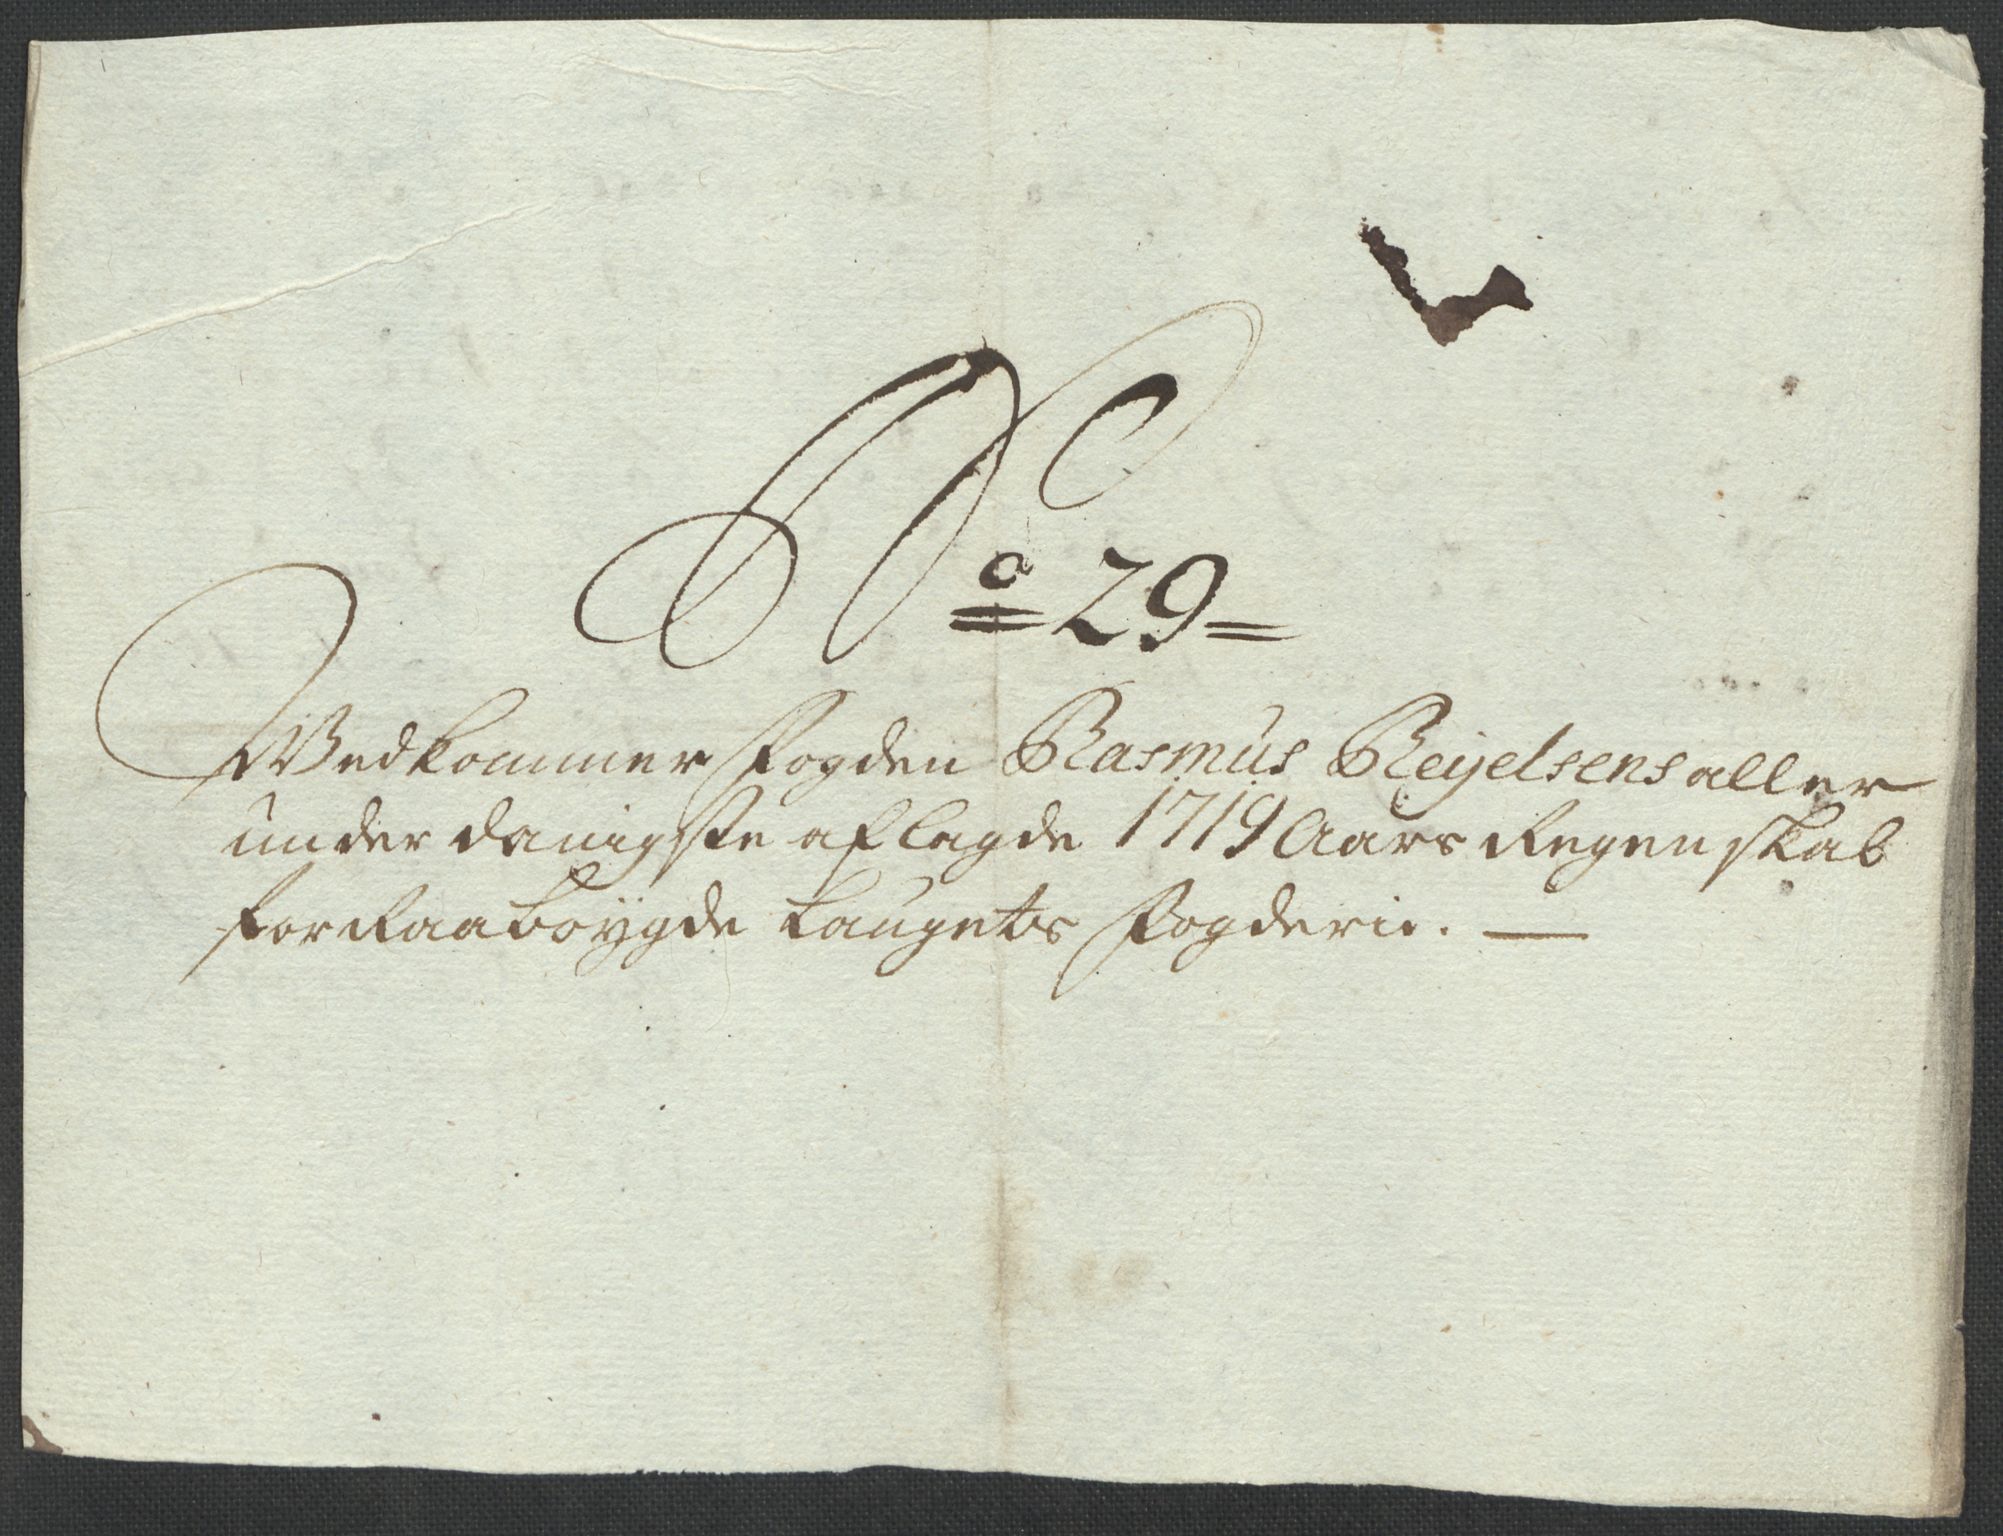 No 29
Vedkommer Fogden Rasmus Reijelsens aller
under danigste aflagde 1719 Aars Regenskab
for Raabøygde Laugets Fogderie.